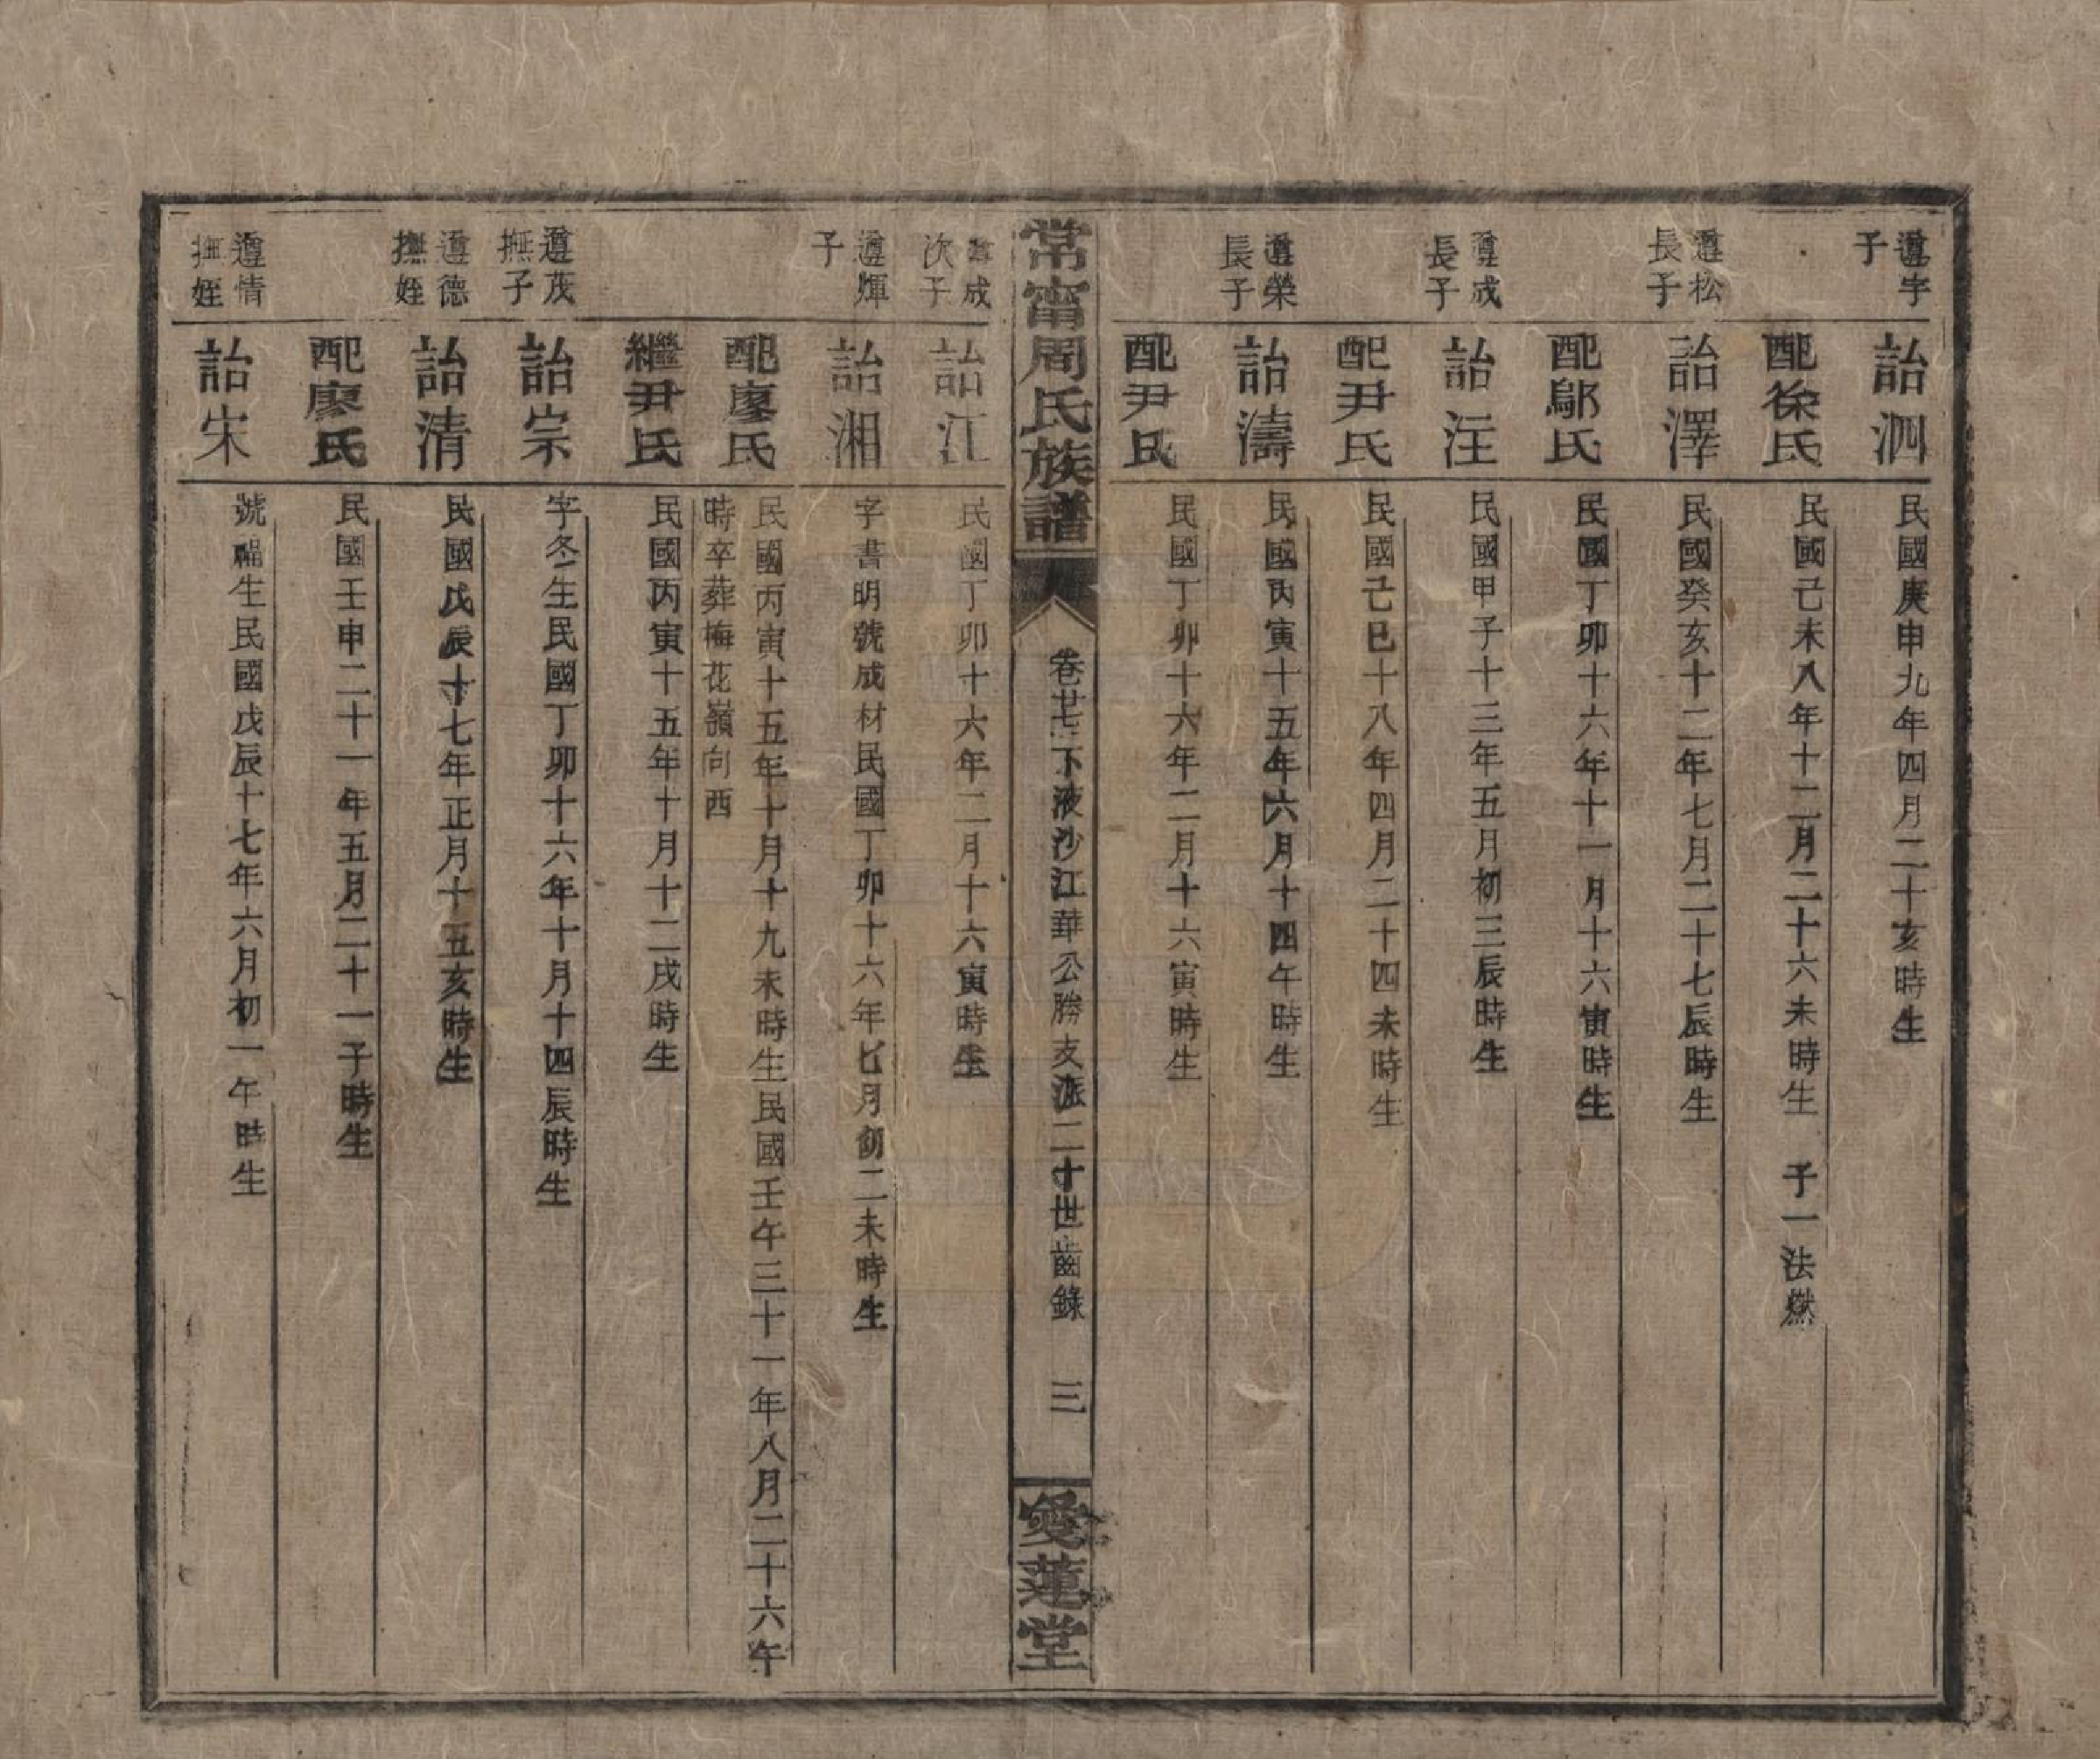 遵字
子
詒泗
民國庚申九年四月二十亥時生
配徐氏
民國己未八年十二月二十六未時生 子一法燃
遵松
長子
詒澤
民國癸亥十二年七月二十七辰時生
配鄔氏
民國丁卯十六年十一月十六寅時生
遵成
長子
詒汪
民國甲子十三年五月初三辰時生
配尹氏
民國己巳十八年四月二十四未時生
遵榮
長子
詒濤
民國丙寅十五年六月十四午時生
配尹氏
民國丁卯十六年二月十六寅時生
常甯周氏族譜
卷廿七下液沙江華公勝支派二十世齒錄 三
愛蓮堂
遵成
次子
詒江
民國丁卯十六年二月十六寅時生
遵輝
子
詒湘
字書明號成材民國丁卯十六年七月初二未時生
配廖氏
民國丙寅十五年十月十九未時生民國壬午三十一年八月二十六午
時卒葬梅花嶺向西
繼尹氏
民國丙寅十五年十月十二戌時生
遵茂
撫子
詒宗
字冬生民國丁卯十六年十月十四辰時生
遵德
撫姪
詒清
民國戊辰十七年正月十五亥時生
配廖氏
民國壬申二十一年五月二十一子時生
遵情
撫姪
詒宋
號福生民國戊辰十七年六月初一午時生